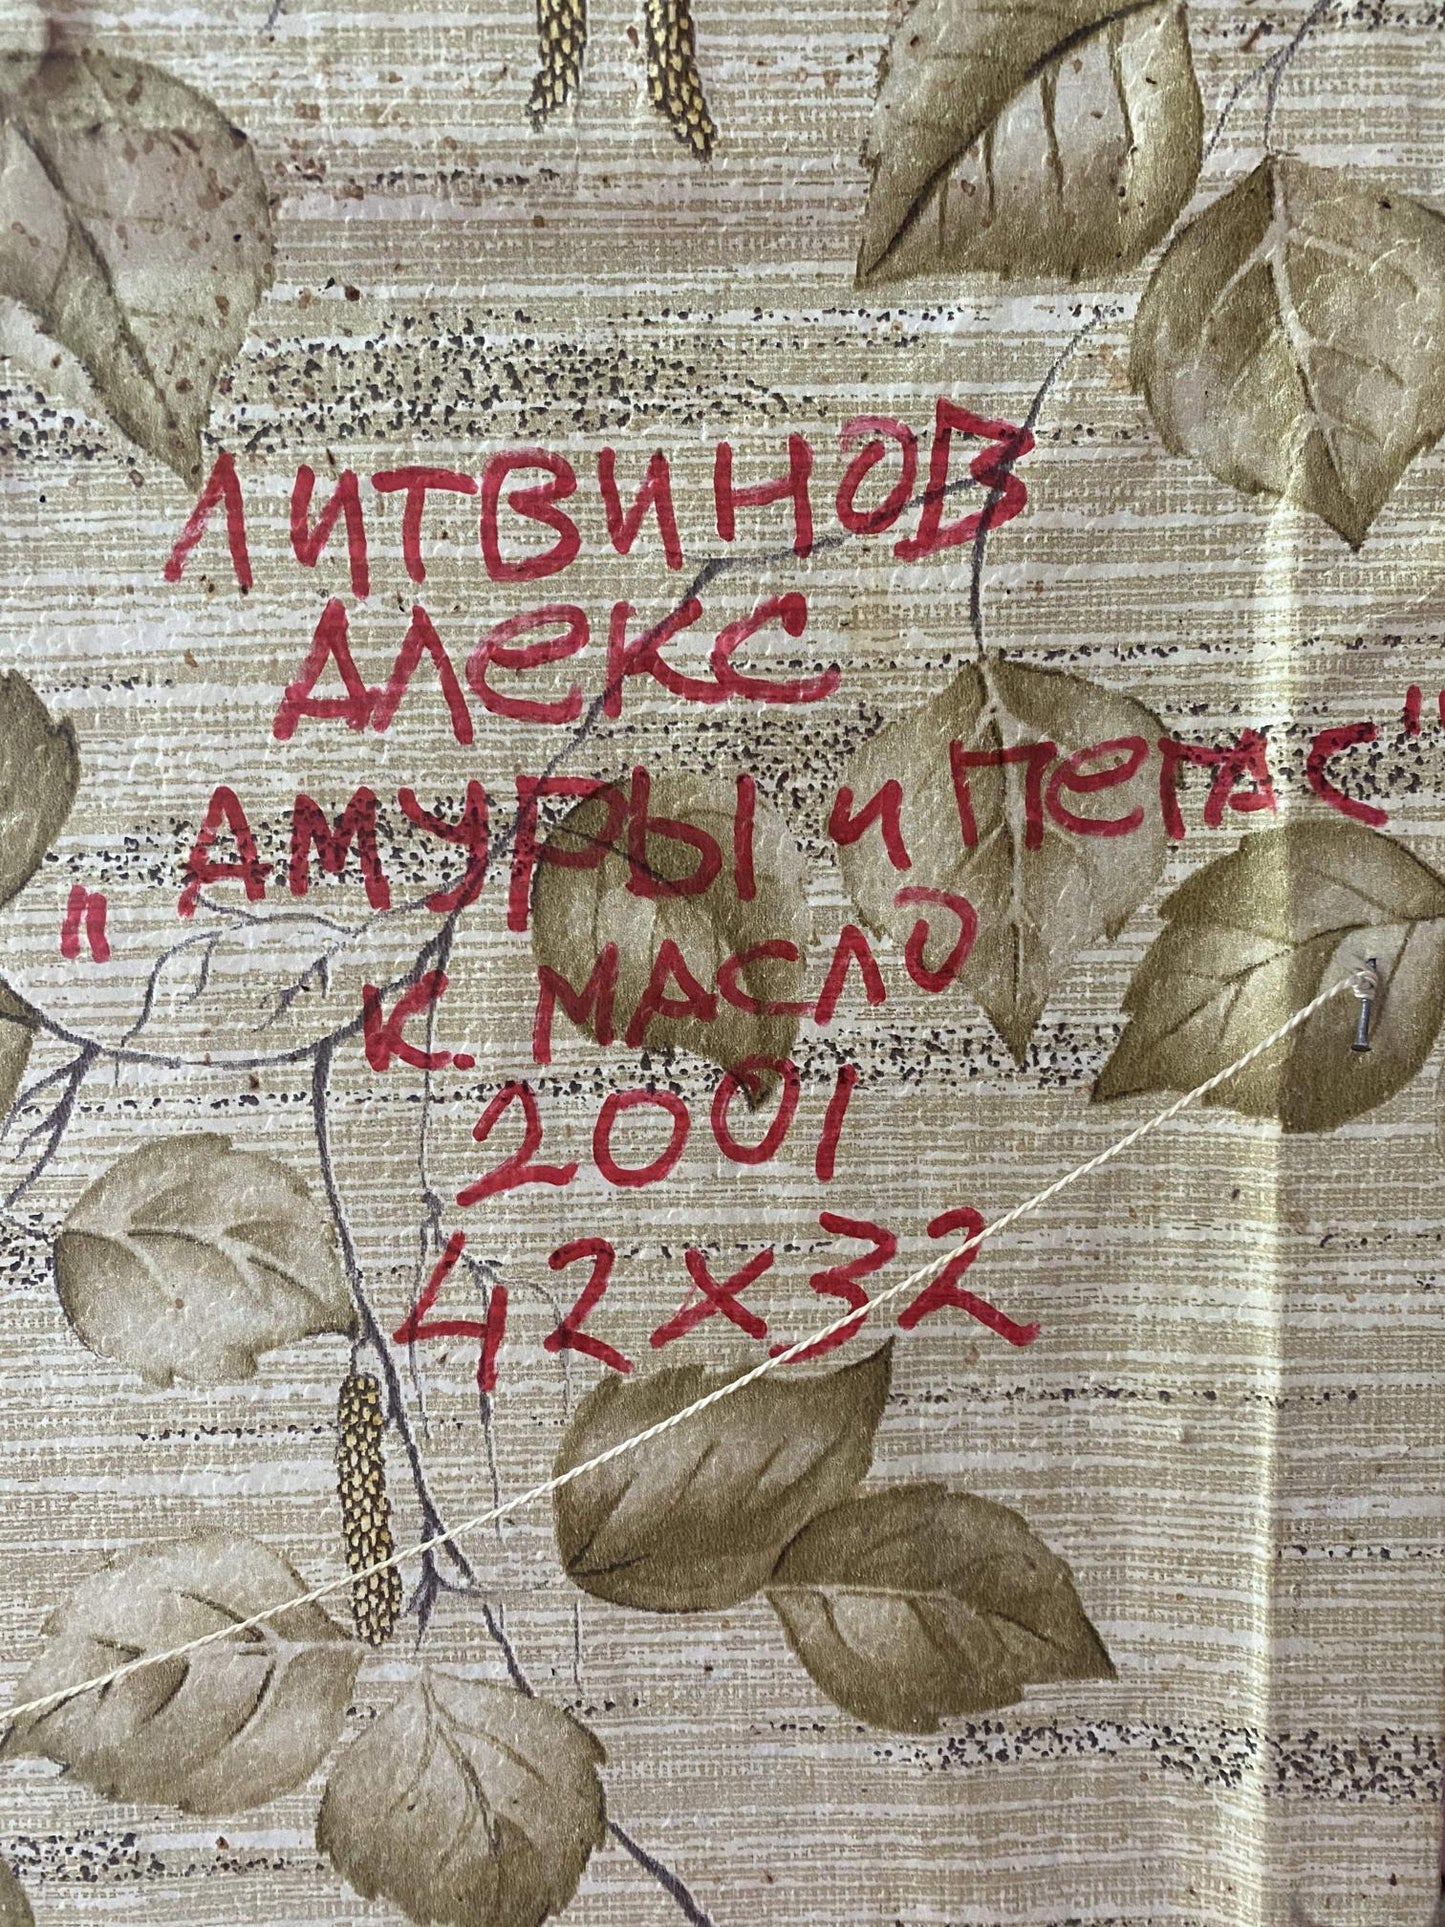 ЛИТВИНОВ
АЛЕКС
"АМУРЫ и ПЕГАС"
К. МАСЛО
2001
42x32